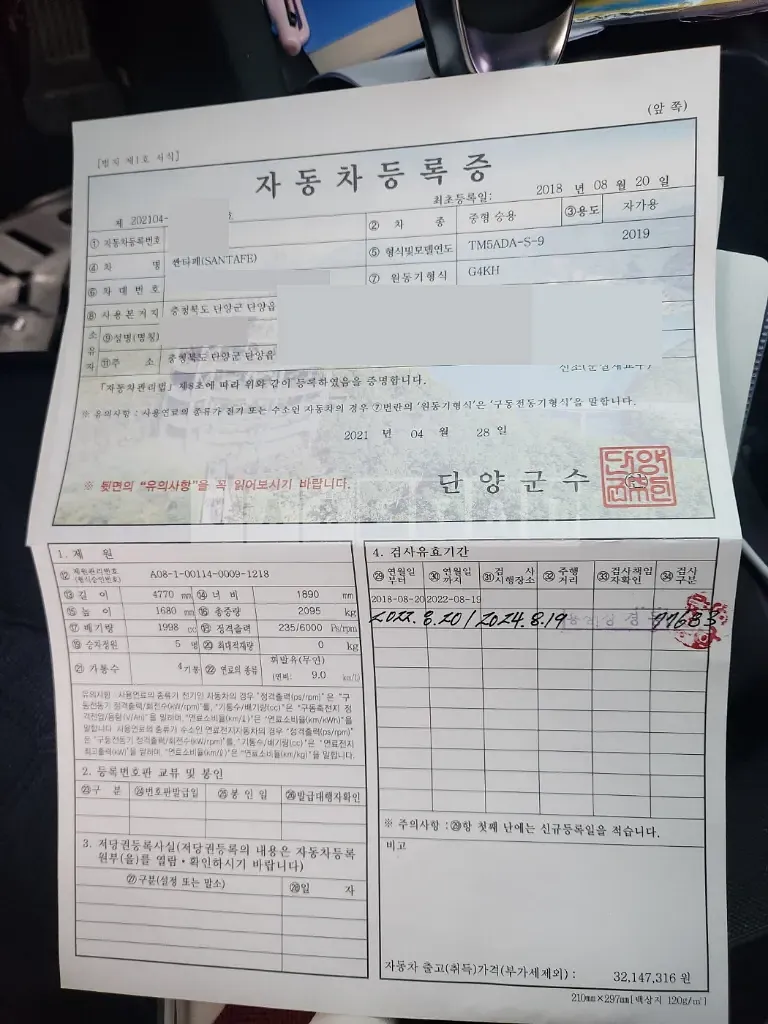 (앞 쪽)
[별지 제1호 서식]
자동차등록증
최초등록일: 2018 년 08 월 20 일
제 202104- 호
① 자동차등록번호 ② 차 종 중형 승용 ③용도 자가용
④ 차 명 싼타페(SANTAFE) ⑤ 형식및모델연도 TM5ADA-S-9 2019
⑥ 차 대 번 호 ⑦ 원동기형식 G4KH
⑧ 사용본거지 충청북도 단양군 단양읍
소유자 ⑨성명(명칭)
⑪주 소 충청북도 단양군 단양읍
「자동차관리법」 제8조에 따라 위와 같이 등록하였음을 증명합니다.
※ 유의사항 : 사용연료의 종류가 전기 또는 수소인 자동차의 경우 ⑦번란의 '원동기형식'은 '구동전동기형식'을 말합니다.
2021 년 04 월 28 일
※ 뒷면의 "유의사항"을 꼭 읽어보시기 바랍니다.
단양군수
1. 제 원
⑫ 제원관리번호 (형식승인번호) A08-1-00114-0009-1218
⑬ 길 이 4770 mm ⑭ 너 비 1890 mm
⑮ 높 이 1680 mm ⑯ 총중량 2095 kg
⑰ 배기량 1998 cc ⑱ 정격출력 235/6000 Ps/rpm
⑲ 승차정원 5 명 ⑳ 최대적재량 0 kg
㉑ 기통수 4기통 ㉒ 연료의 종류 휘발유(무연) (연비: 9.0 km/ℓ)
유의사항 : 사용연료의 종류가 전기인 자동차의 경우 "정격출력(ps/rpm)" 은 "구
동전동기 정격출력/회전수(kW/rpm)"를, "기통수/배기량(cc)"은 "구동축전지 정
격전압/용량(V/Ah)"을 말하며, "연료소비율(km/ℓ)"은 "연료소비율(km/kWh)"을
말합니다. 사용연료의 종류가 수소인 연료전지자동차의 경우 "정격출력(ps/rpm)"
은 "구동전동기 정격출력/회전수(kW/rpm)"를, "기통수/배기량(cc)"은 "연료전지
최고출력(kW)"을 말하며, "연료소비율(km/ℓ)"은 "연료소비율(km/kg)"을 말합니다.
2. 등록번호판 교류 및 봉인
㉓구 분 ㉔번호판발급일 ㉕봉 인 일 ㉖발급대행자확인
3. 저당권등록사실(저당권등록의 내용은 자동차등록
원부(을)를 열람・확인하시기 바랍니다)
㉗구분(설정 또는 말소) ㉘일 자
4. 검사유효기간
㉙ 연월일부터 ㉚ 연월일까지 ㉛ 검 사 시행장소 ㉜ 주행거리 ㉝ 검사책임자확인 ㉞ 검사구분
2018-08-20 2022-08-19
2022. 8. 20 / 2024. 8. 19
※ 주의사항 : ㉙항 첫째 난에는 신규등록일을 적습니다.
비고
자동차 출고(취득)가격(부가세제외) : 32,147,316 원
210㎜×297㎜[백상지 120g/㎡]